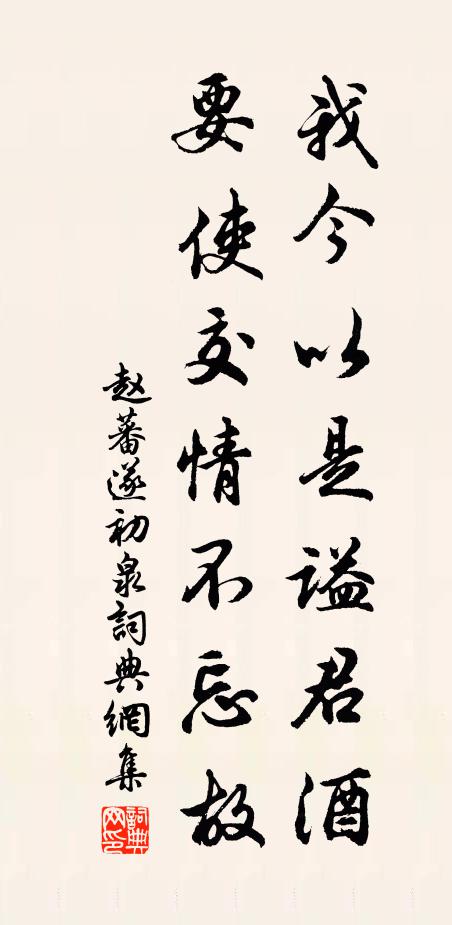 我今以是谥君酒
要使交情不忘故
赵蕃遂初泉詞典網集
詞典網印